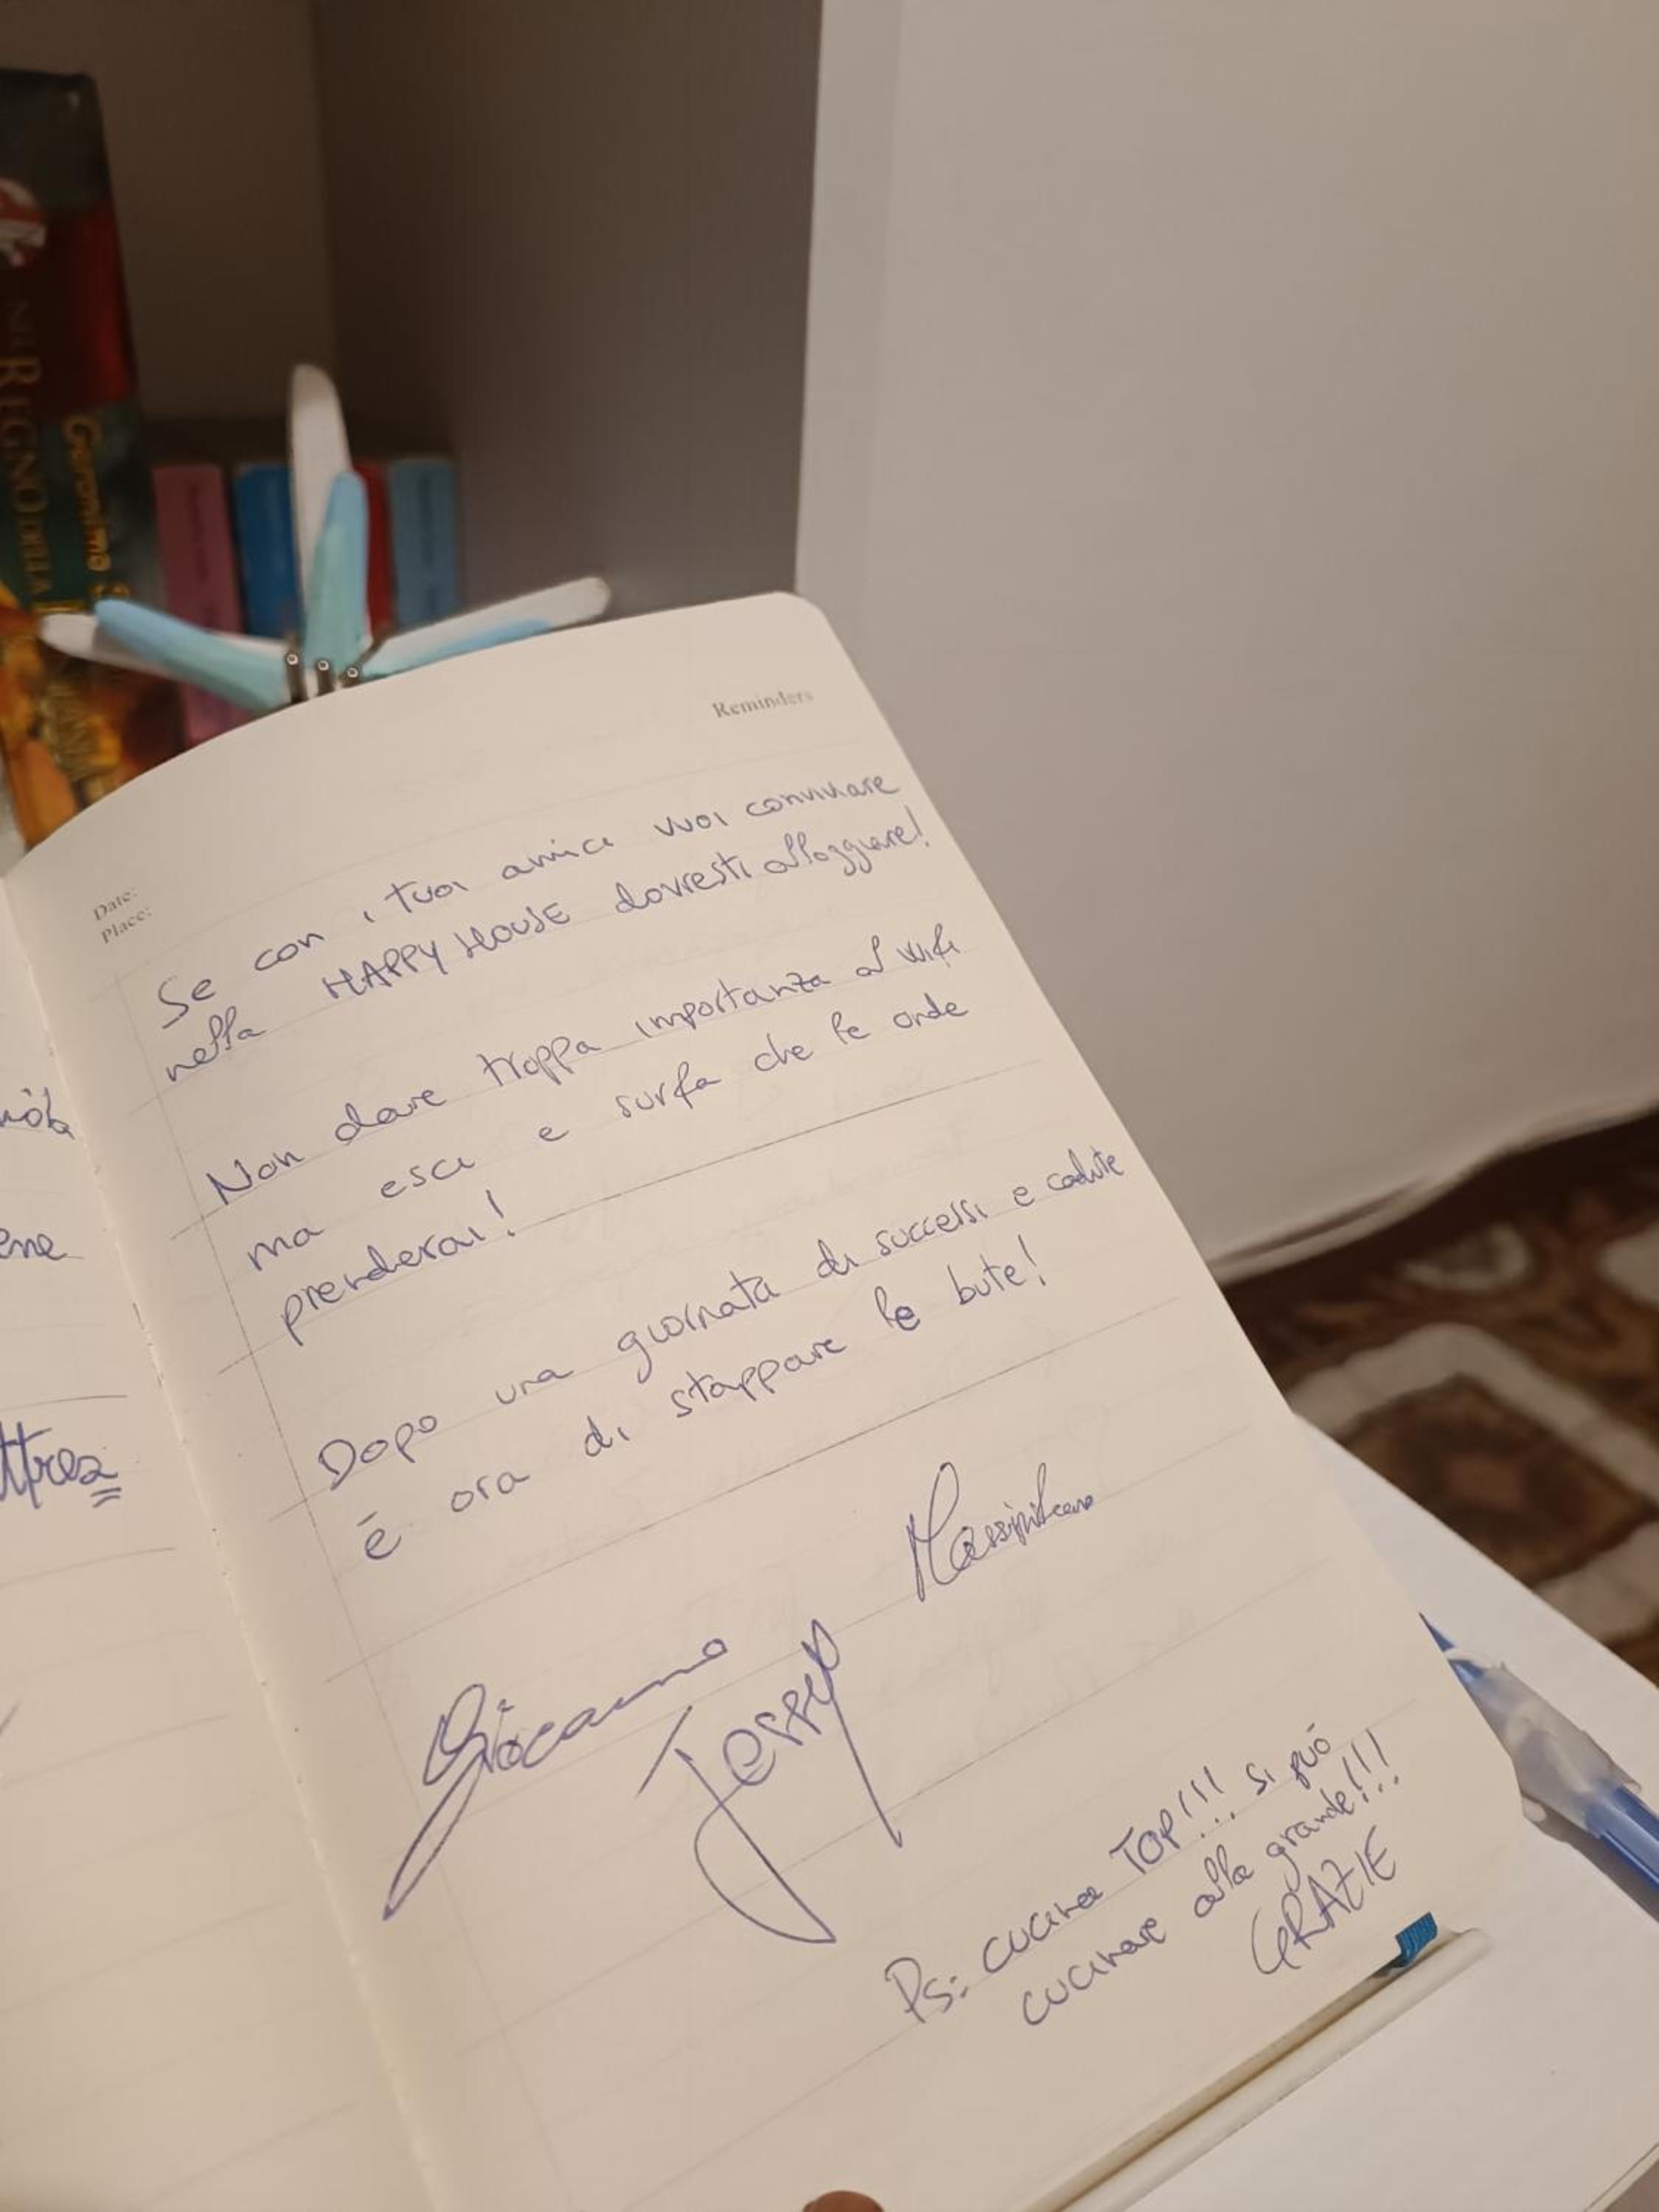 NEL REGNO DELLA
Geronimo S
Reminders
Date:
Place:
Se con i tuoi amici vuoi convivare
nella HAPPY HOUSE dovresti alloggiare!
Non dare troppa importanza al wifi
ma esci e surfa che le onde
prenderai!
Dopo una giornata di successi e cadute
è ora di stappare le bute!
Massimiliano
Giocanno
Jessyp
Ps: cucina TOP!!! si può
cucinare alla grande!!!
GRAZIE